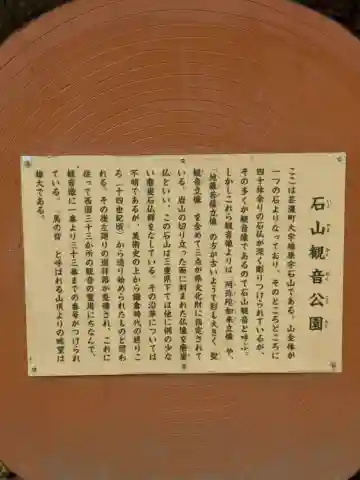 石山観音公園
いし やま かん のん こう えん
ここは芸濃町大字楠原字石山である。山全体が
一つの石よりなっており、そのところどころに
四十体余りの石仏が深く彫りつけられているが、
その多くが観音像であるので石山観音と呼ぶ。
しかしこれら観音像よりは「阿弥陀如来立像」や、
「地蔵菩薩立像」の方が古いようで彫も大きく、聖
観音立像」を含めて三体が県文化財に指定されて
いる。岩山の切り立った面に刻まれた仏像を磨崖
仏といい、この石山は三重県下では他に例の少な
い磨崖石仏群をなしている。その沿革については
不明であるが、美術史の上から鎌倉時代の終りご
ろ(十四世紀頃)から造り始められたものと思わ
れる。その後左廻りの巡拝路が整備され、これに
従って西国三十三か所の観音の霊場にちなんで、
観音像に一番より三十三番までの番号がつけられ
ている。「馬の背」と呼ばれる山頂よりの眺望は
雄大である。